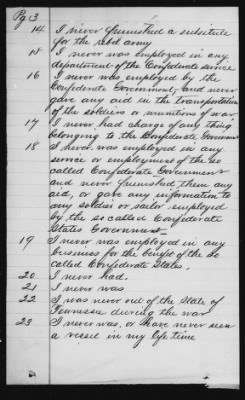 Pg 3
14 I never furnished a substitute
for the rebel army
15 I never was employed in any
department of the Confederate service
16 I never was employed by the
Confederate Government, and never
gave any aid in the transportation
of the soldiers or munitions of war.
17 I never had charge of any thing
belonging to the Confederate Government
18 I never was employed in any
service or employment of the so
called Confederate Government
and never furnished them any
aid, or gave any information to
any soldier or sailor employed
by the so called Confederate
States Government
19 I never was employed in any
business for the benefit of the so
called Confederate States.
20 I never had.
21 I never was
22 I was never out of the State of
Tennessee during the war
23 I never was, or have never seen
a vessel in my life time